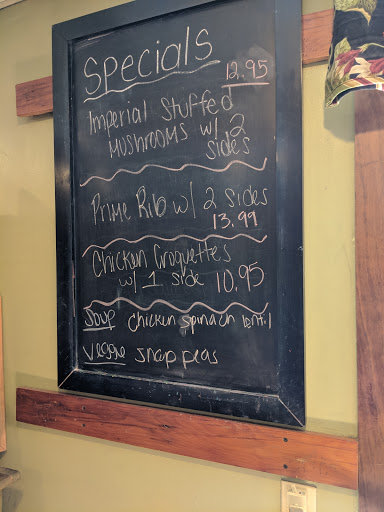 Specials
12.95
Imperial Stuffed
Mushrooms w/ 2
sides
Prime Rib w/ 2 sides
13.99
Chicken Croquettes
w/ 1 side 10.95
Soup chicken spinach lentil
Veggie snap peas